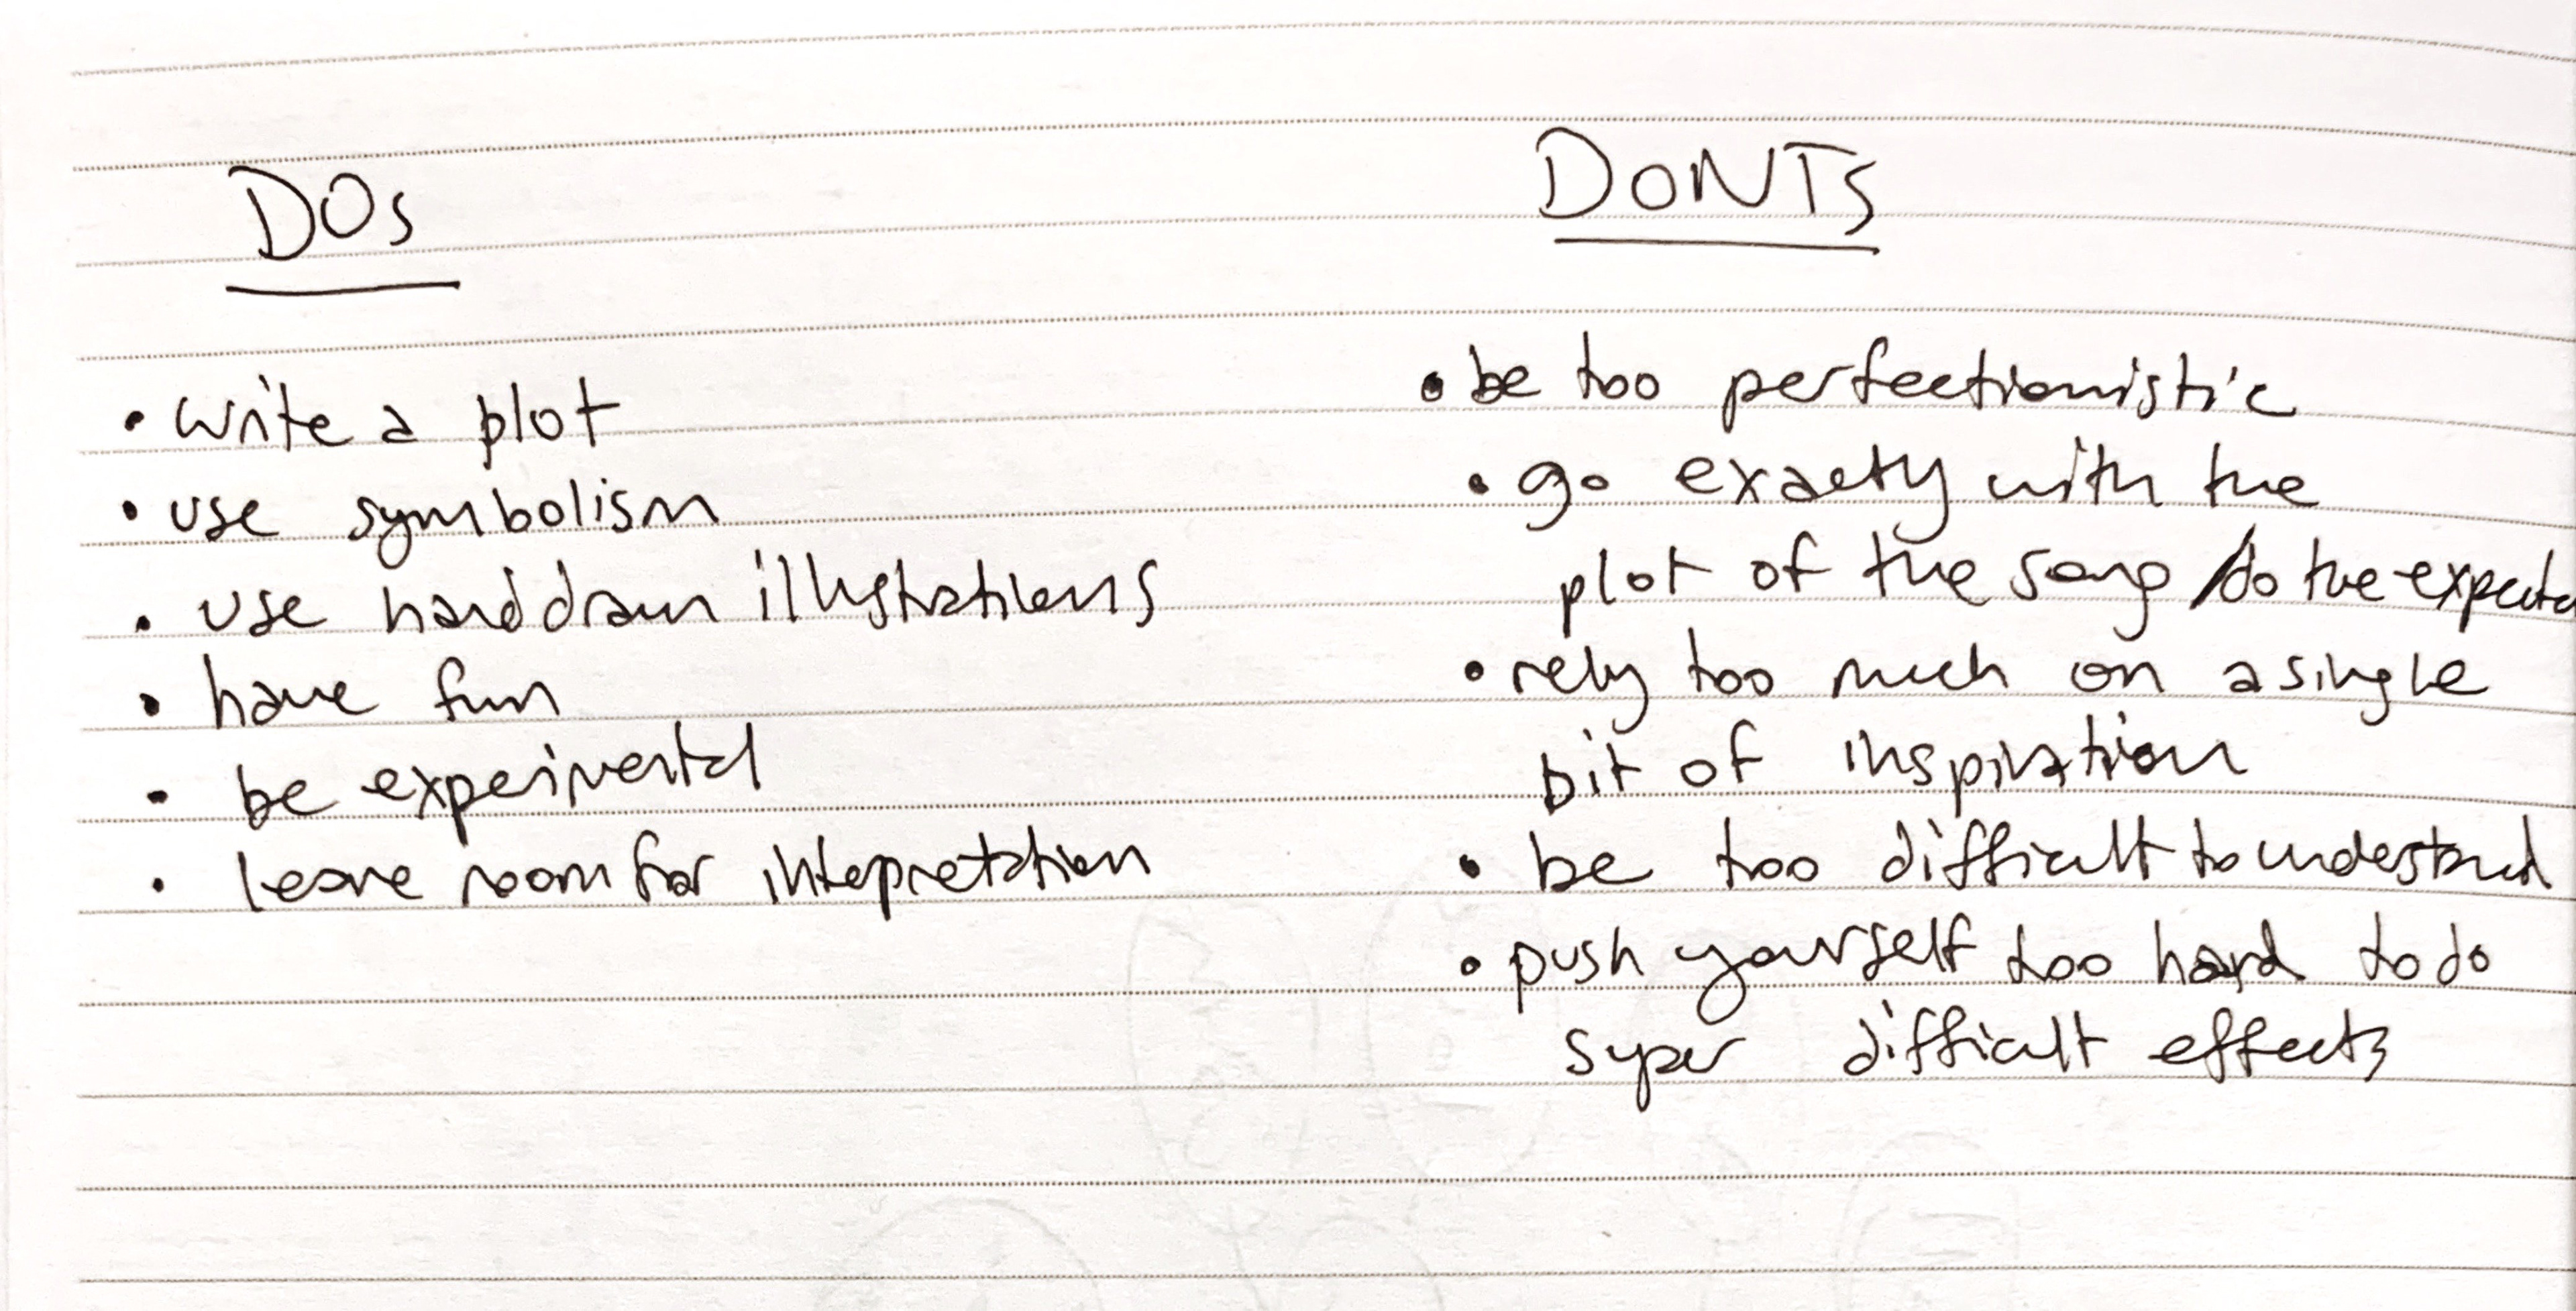 DOs
• write a plot
• use symbolism
• use handdrawn illustrations
• have fun
• be experimental
• leave room for intepretation
DONTs
• be too perfectionistic
• go exactly with the
plot of the song / do the expecte
• rely too much on a single
bit of inspiration
• be too difficult to understand
• push yourself too hard to do
super difficult effects